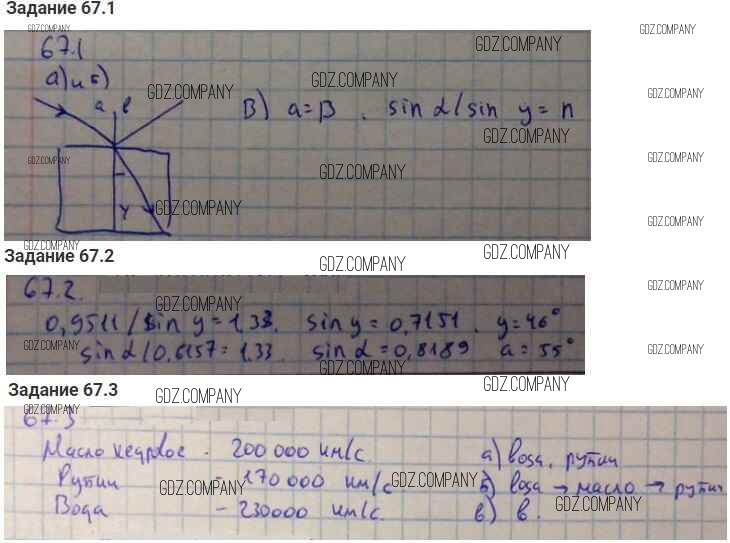 Задание 67.1
67.1
а) и б)
a β
В) a = β . sin α / sin y = n
y
Задание 67.2
67.2.
0,9511 / sin y = 1,33. sin y = 0,7151. y = 46°
sin α / 0,6157 = 1.33. sin α = 0,8189 a = 55°
Задание 67.3
67.3
Масло кедровое - 200 000 км/с. а) вода, рутил
Рутил - 170 000 км/с. б) вода → масло → рутил
Вода - 230000 км/с. в) в.
GDZ.COMPANY